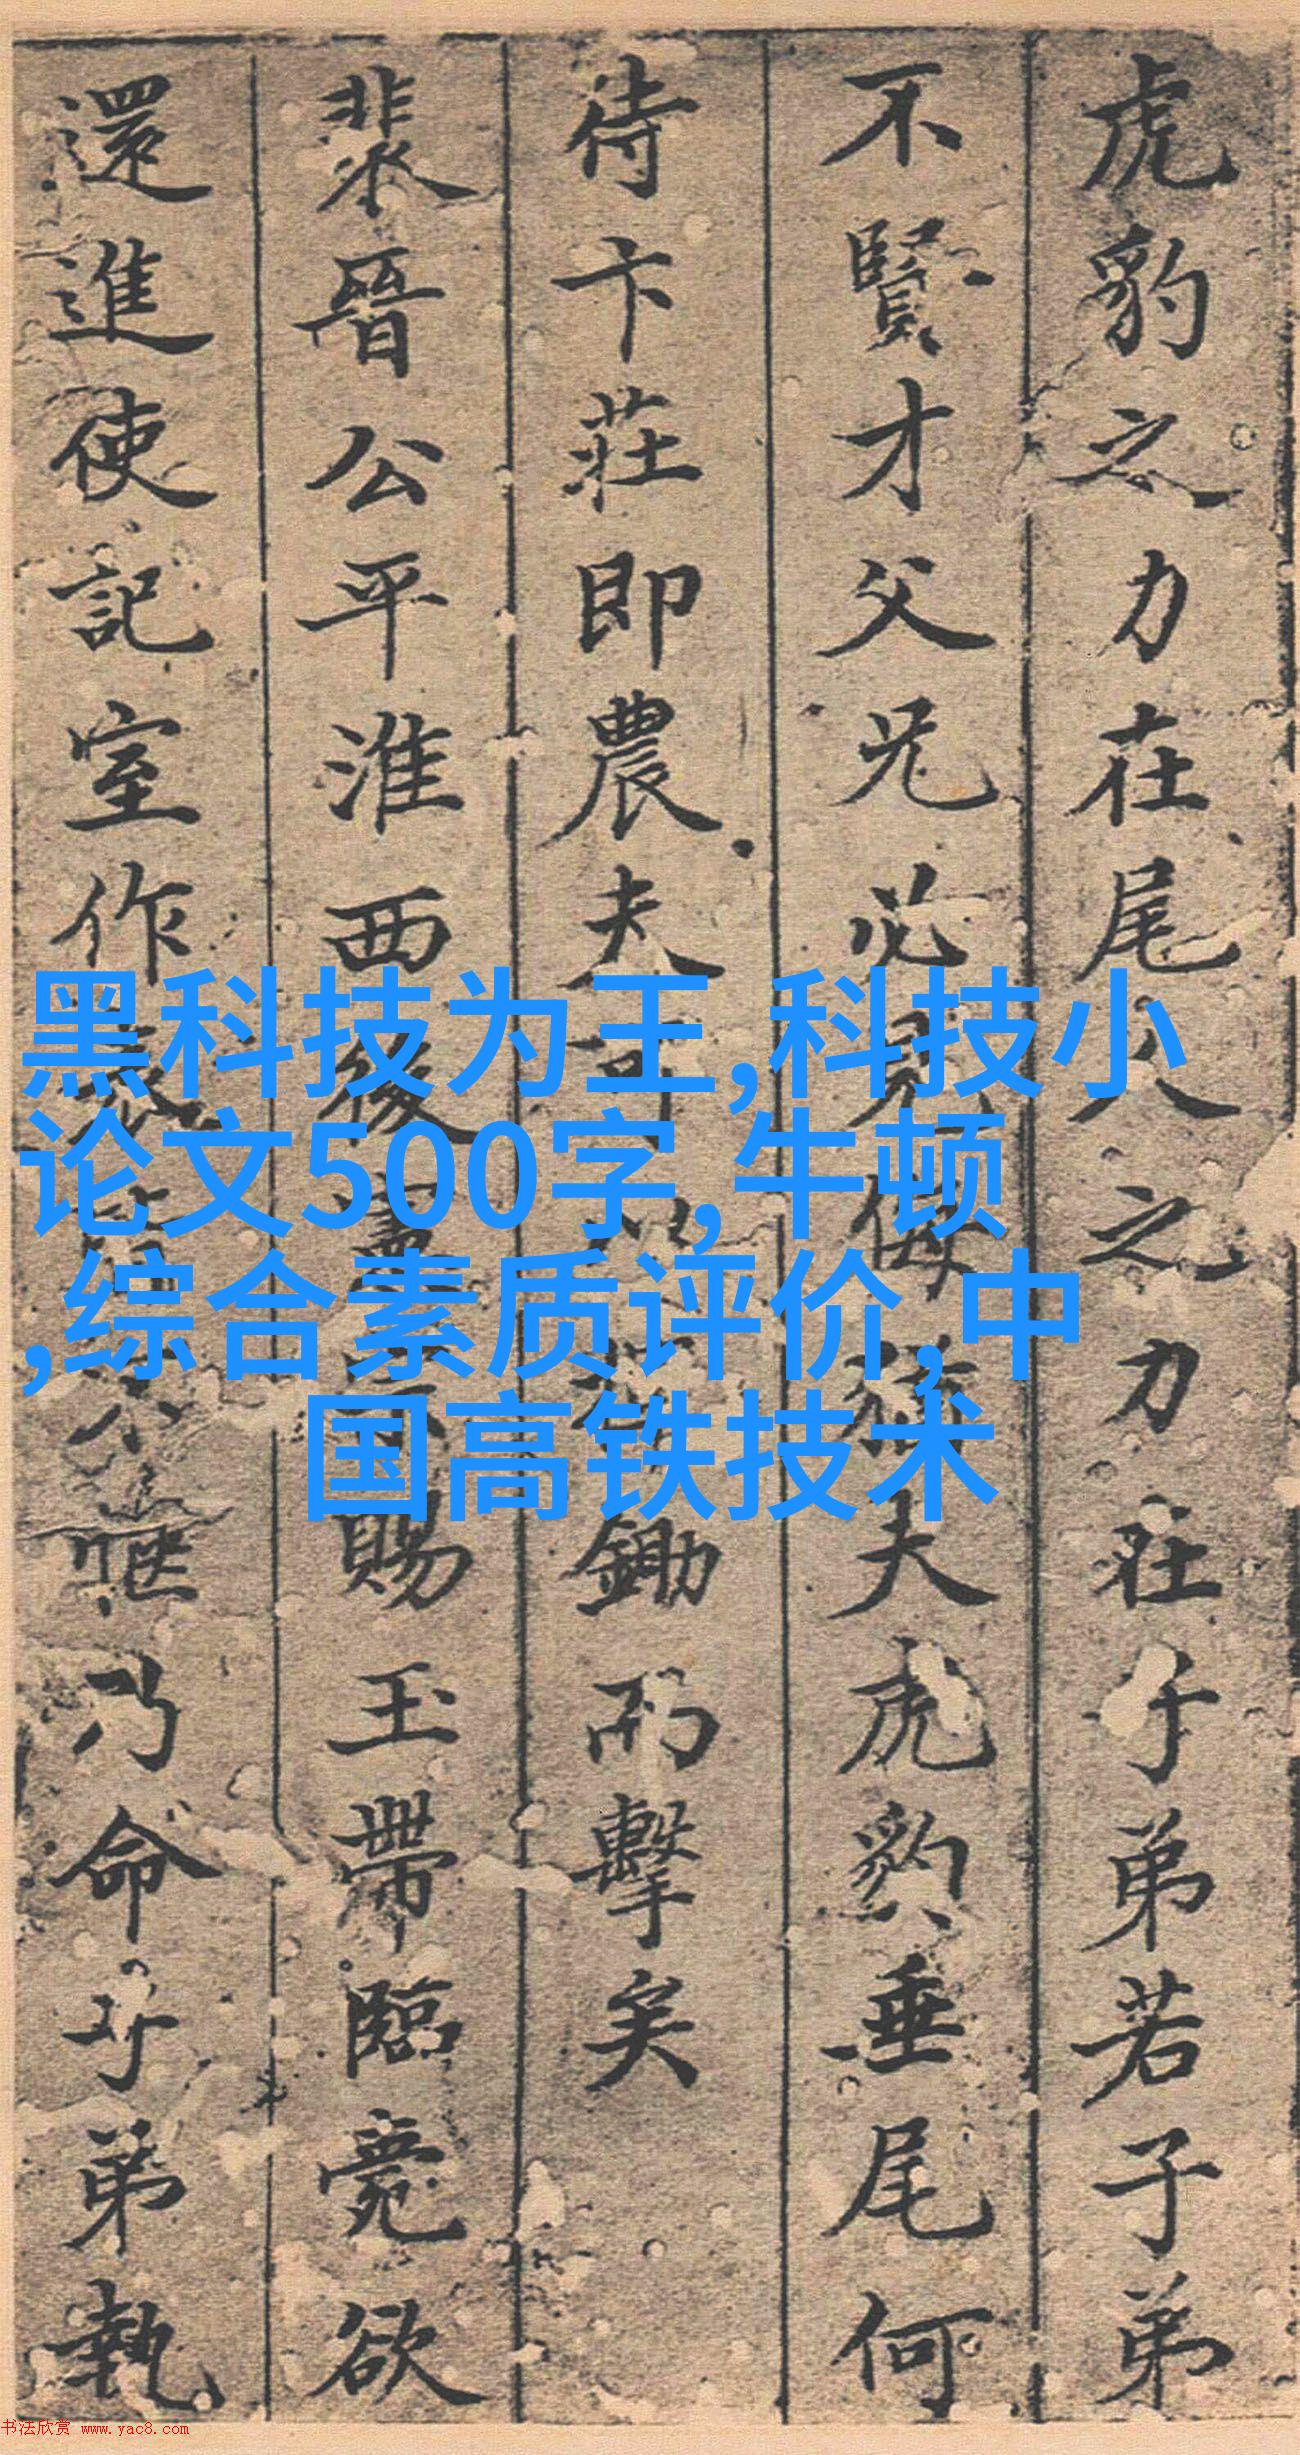 虎豹之力在尾人之力在子弟若子弟
不賢才父兄必見侮夫虎豹垂尾何
待卞莊即農夫可以鋤而擊矣
裴晉公平淮西後憲宗賜玉帶臨薨欲
還進使記室作表皆不愜乃命子弟執
黑科技为王,科技小
论文500字,牛顿
,综合素质评价,中
国高铁技术
书法欣赏 www.yac8.com